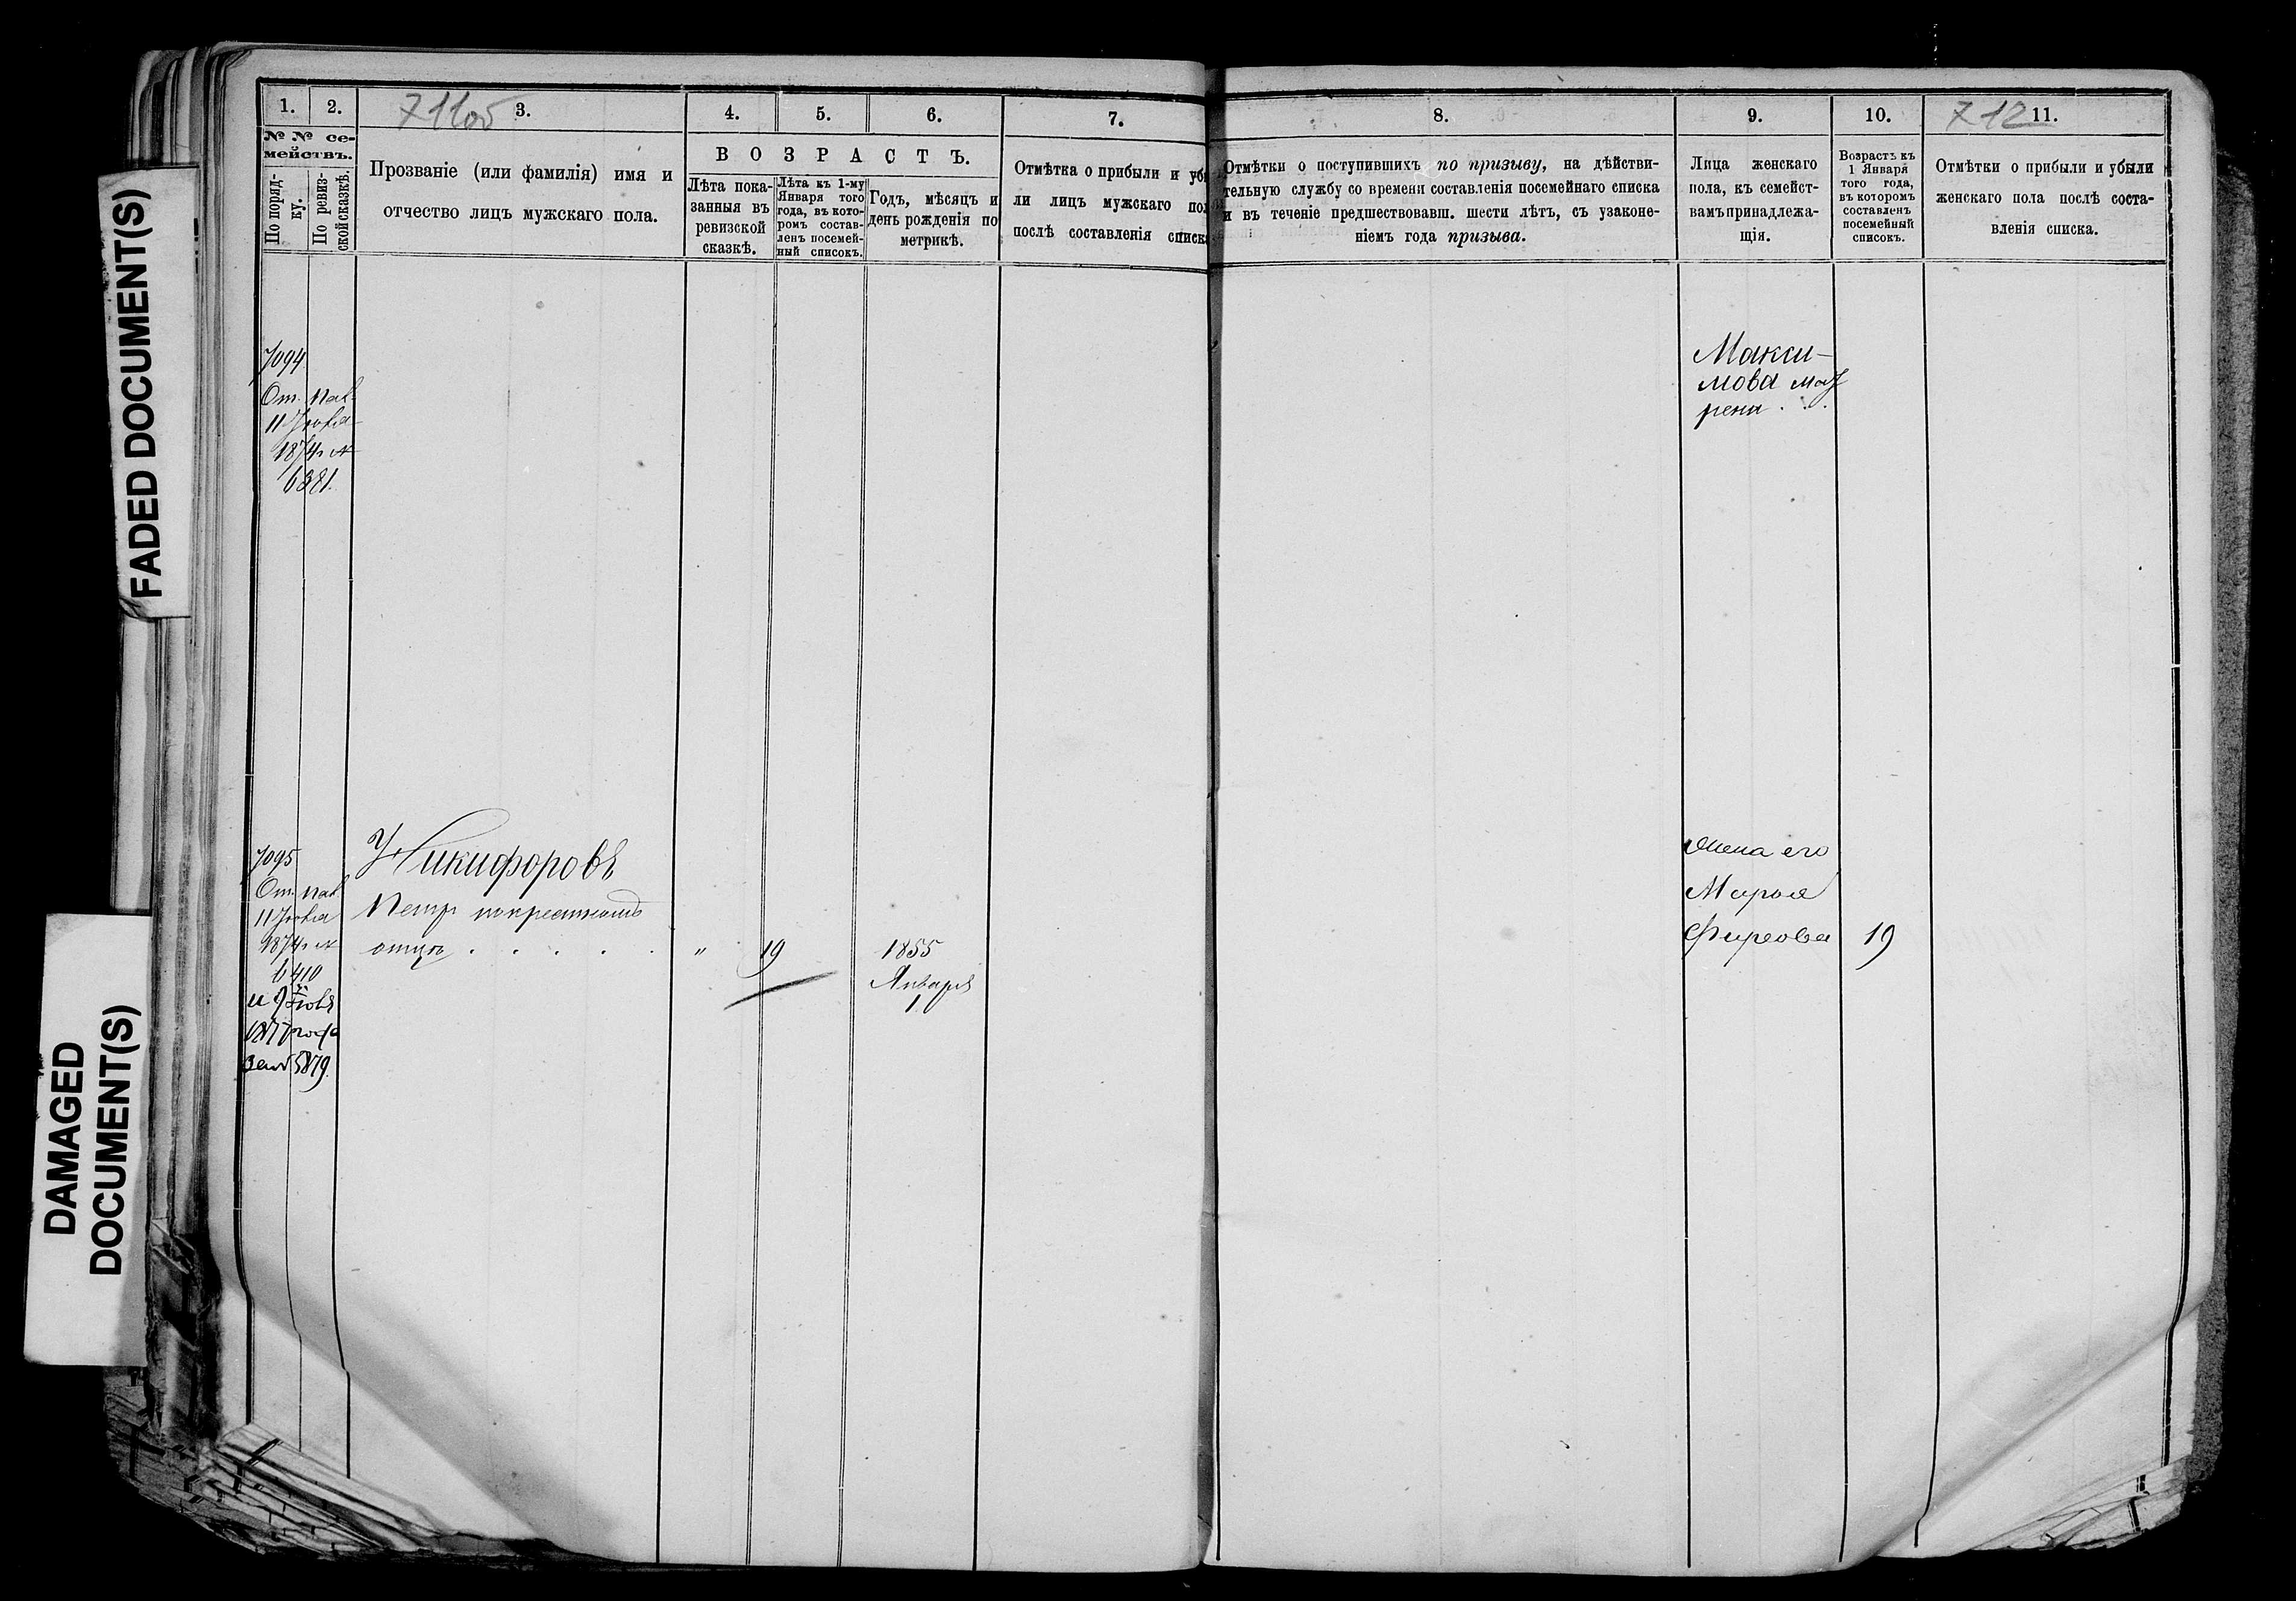 FADED DOCUMENT(S)
DAMAGED
DOCUMENT(S)
711об
712
1.
2.
3.
4.
5.
6.
7.
8.
9.
10.
11.
№ № се-
мействъ.
По поряд-
ку.
По ревиз-
ской сказкѣ.
Прозваніе (или фамилія) имя и
отчество лицъ мужскаго пола.
ВОЗРАСТЪ.
Лѣта пока-
занныя въ
ревизской
сказкѣ.
Лѣта къ 1-му
Января того
года, въ кото-
ромъ состав-
ленъ посемей-
ный списокъ.
Годъ, мѣсяцъ и
день рожденія по
метрикѣ.
Отмѣтка о прибыли и убы
ли лицъ мужскаго пол
послѣ составленія списка
Отмѣтки о поступившихъ по призыву, на дѣйстви-
тельную службу со времени составленія посемейнаго списка
и въ теченіе предшествовавш. шести лѣтъ, съ узаконе-
ніемъ года призыва.
Лица женскаго
пола, къ семейст-
вамъ принадлежа-
щія.
Возрастъ къ
1 Января
того года,
въ которомъ
составленъ
посемейный
списокъ.
Отмѣтки о прибыли и убыли
женскаго пола послѣ соста-
вленія списка.
7094
От. пав.
11
1874 г №
6381.
Макси-
мова Мат
рена . . .
7095
От. пав.
11
1874 г №
6410
и 9
1877 года
за № 5879.
Никифоровъ
Петр по крестному
отцу . . . . . " 19 1855
Января
1
Жена его
Марья
Фирсова 19